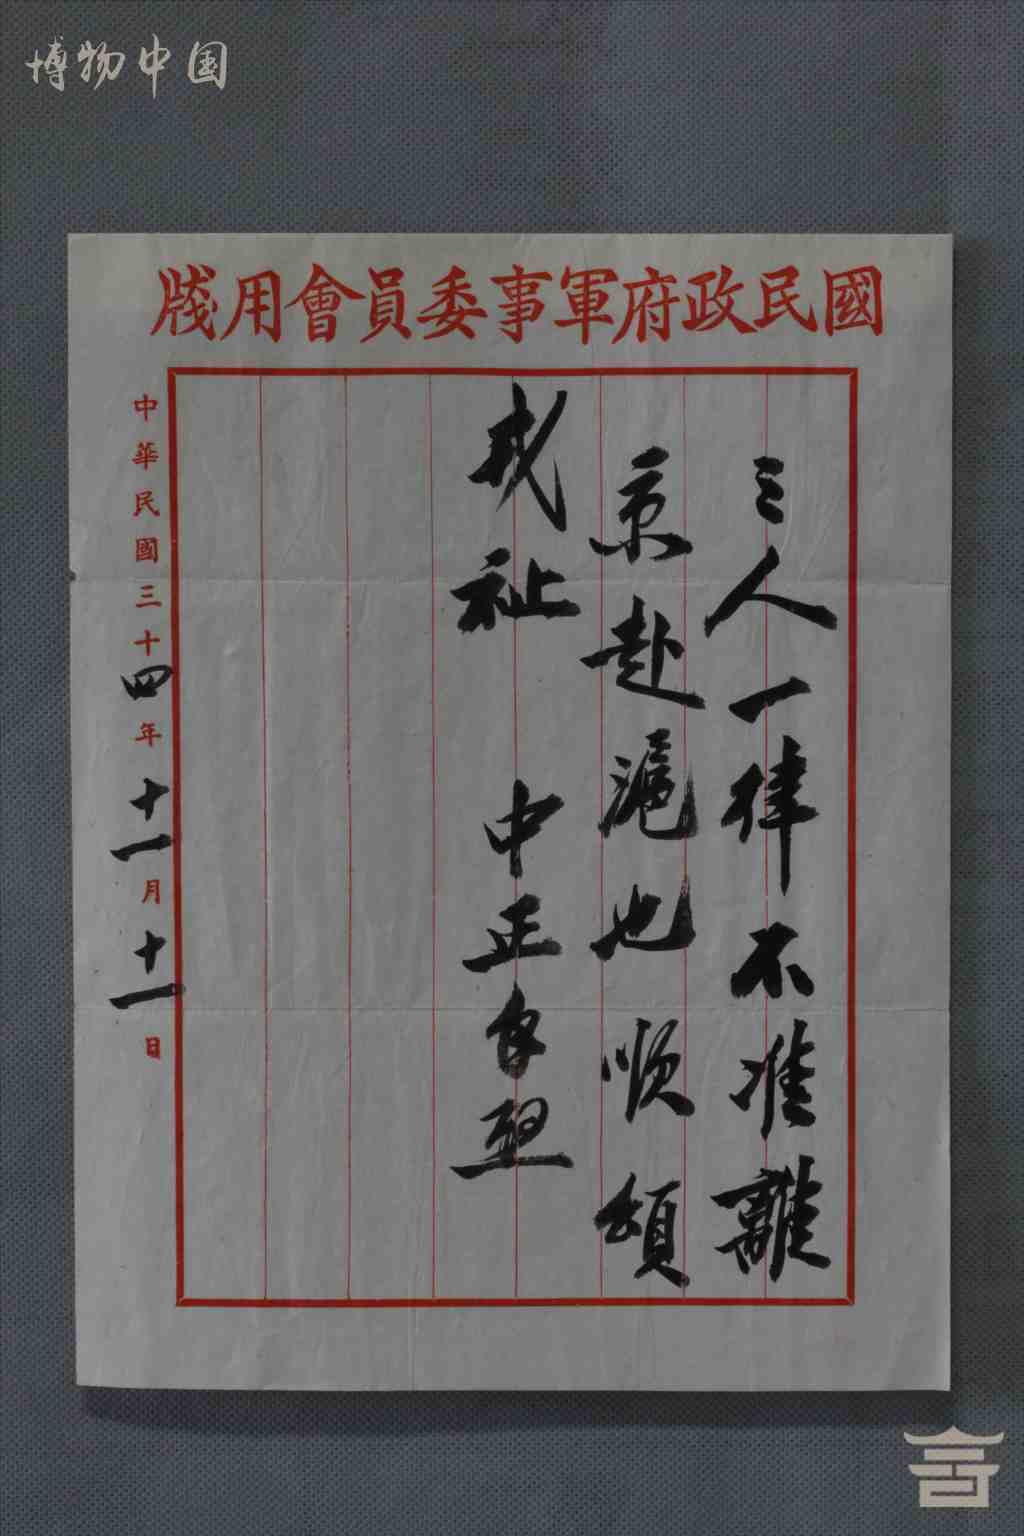 博物中国
國民政府軍事委員會用牋
三人一律不准離
京赴滬也順頌
戎祉 中正
中華民國三十四年十一月十一日